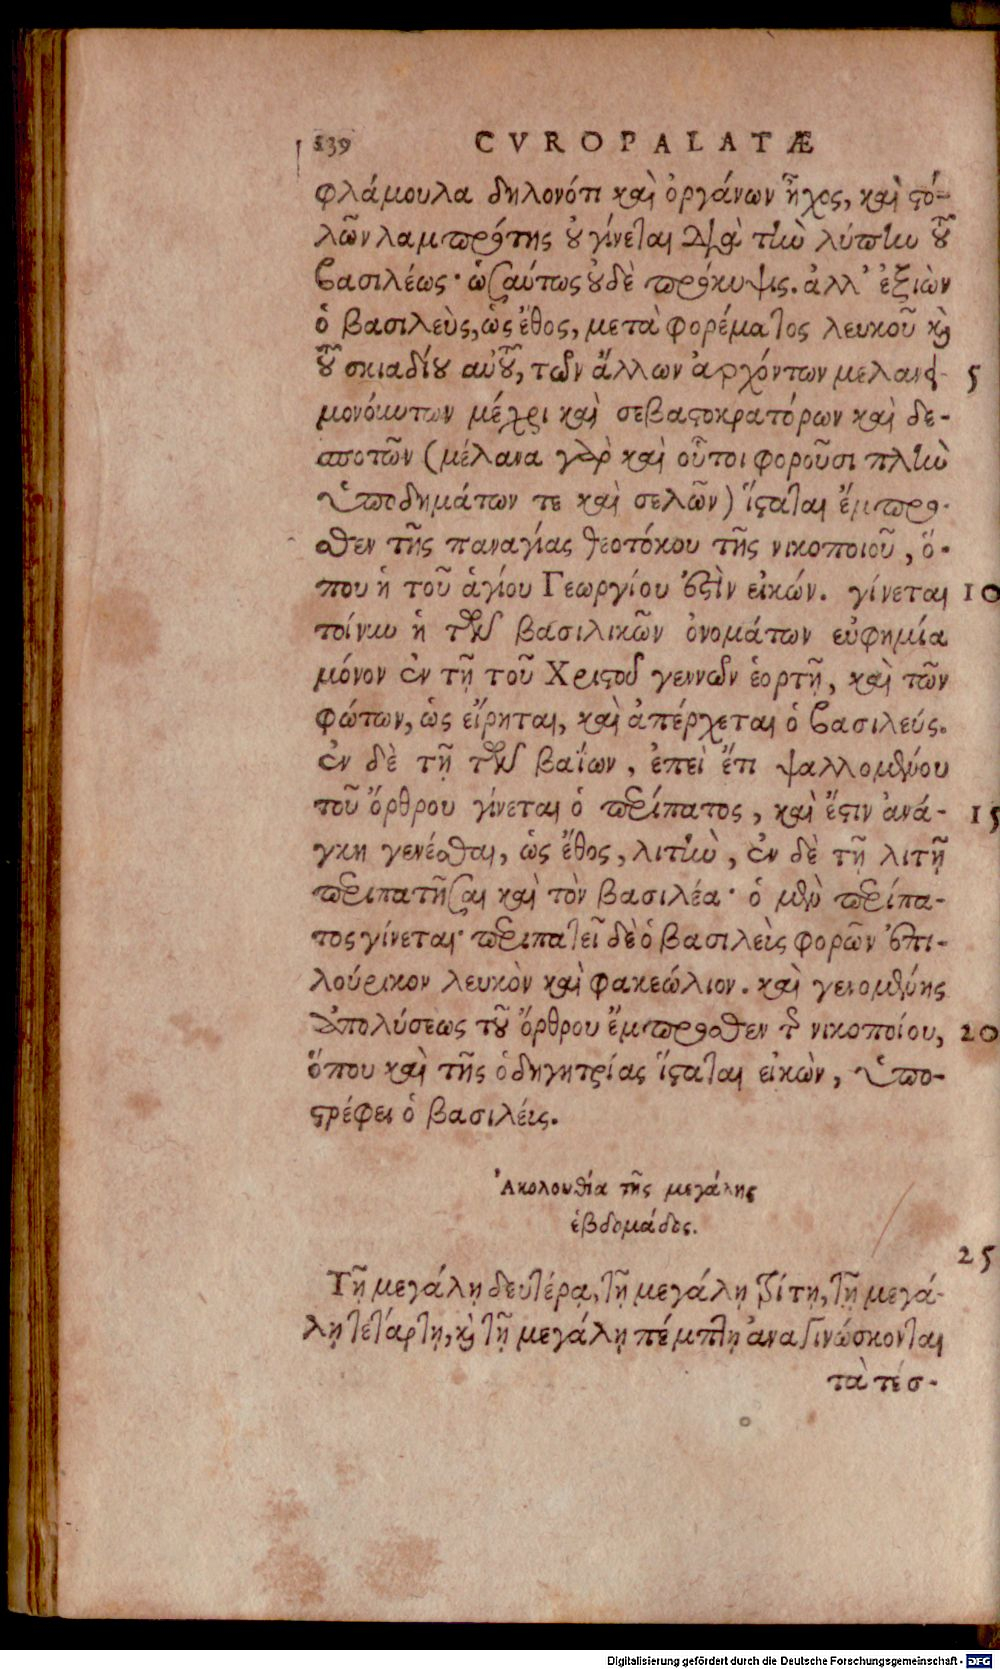 139 CVROPALATÆ
φλάμουλα δηλονότι καὶ ὀργάνων ἦχος, καὶ στό-
λων λαμπρότης οὐ γίνεται διὰ τὴν λύπην τοῦ
βασιλέως· ὡσαύτως οὐδὲ πρόκυψις. ἀλλ' ἐξιὼν
ὁ βασιλεὺς, ὡς ἔθος, μετὰ φορέματος λευκοῦ καὶ
τοῦ σκιαδίου αὐτοῦ, τῶν ἄλλων ἀρχόντων μελανει- 5
μονούντων μέχρι καὶ σεβαστοκρατόρων καὶ δε-
σποτῶν (μέλανα γὰρ καὶ οὗτοι φοροῦσι πλὴν
ὑποδημάτων τε καὶ σελῶν) ἵσταται ἔμπρο-
σθεν τῆς παναγίας θεοτόκου τῆς νικοποιοῦ, ὅ-
που ἡ τοῦ ἁγίου Γεωργίου ἐστὶν εἰκών. γίνεται 10
τοίνυν ἡ τῶν βασιλικῶν ὀνομάτων εὐφημία
μόνον ἐν τῇ τοῦ Χριστοῦ γεννῶν ἑορτῇ, καὶ τῶν
φώτων, ὡς εἴρηται, καὶ ἀπέρχεται ὁ βασιλεύς.
ἐν δὲ τῇ τῶν βαΐων, ἐπεὶ ἔτι ψαλλομένου
τοῦ ὄρθρου γίνεται ὁ περίπατος, καὶ ἔστιν ἀνά- 15
γκη γενέσθαι, ὡς ἔθος, λιτὴν, ἐν δὲ τῇ λιτῇ
περιπατῆσαι καὶ τὸν βασιλέα· ὁ μὲν περίπα-
τος γίνεται· περιπατεῖ δὲ ὁ βασιλεὺς φορῶν ἐπι-
λούρικον λευκὸν καὶ φακεώλιον. καὶ γενομένης
ἀπολύσεως τοῦ ὄρθρου ἔμπροσθεν τῆς νικοποίου, 20
ὅπου καὶ τῆς ὁδηγητρίας ἵσταται εἰκὼν, ὑπο-
στρέφει ὁ βασιλεύς.
Ἀκολουθία τῆς μεγάλης
ἑβδομάδος.
25
Τῇ μεγάλῃ δευτέρᾳ, τῇ μεγάλῃ τρίτῃ, τῇ μεγά-
λῃ τετάρτῃ, καὶ τῇ μεγάλῃ πέμπτῃ ἀναγινώσκονται
τὰ τέσ-
Digitalisierung gefördert durch die Deutsche Forschungsgemeinschaft - DFG